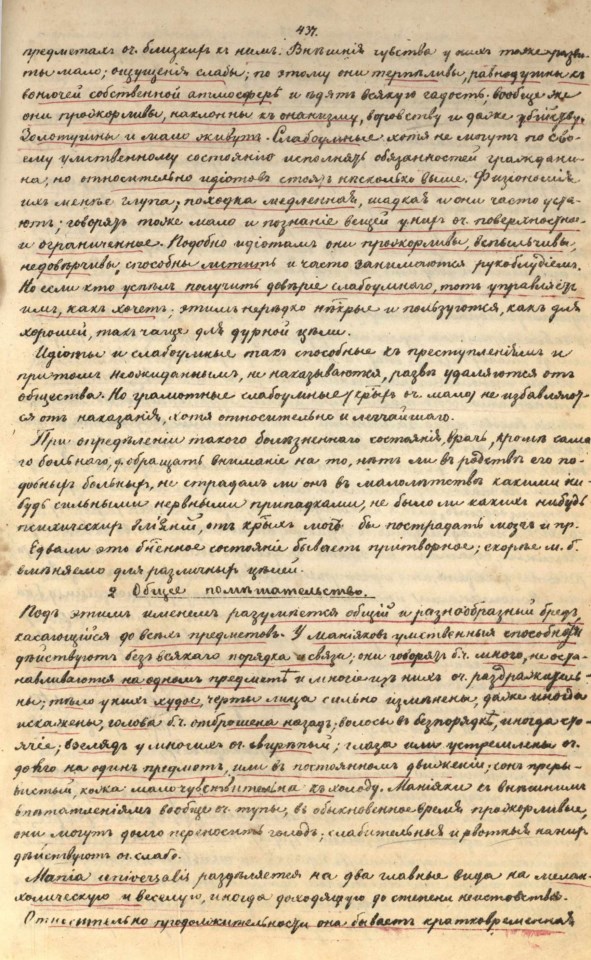 437.
предметамъ оч. близкихъ къ нимъ. Внѣшнія чувства у нихъ тоже разви-
ты мало; ощущенія слабы; по этому они терпѣливы, равнодушны къ
вонючей собственной атмосферѣ и ѣдятъ всякую гадость; вообще же
они прожорливы, наклонны къ онанизму, воровству и даже убійству.
Золотушны и мало живутъ. Слабоумные хотя не могутъ по сво-
ему умственному состоянію исполнять обязанностей граждани-
на, но относительно идіотовъ стоятъ нѣсколько выше. Физіономія
ихъ менѣе глупа; походка медленная, шаткая и они часто
говорятъ тоже мало и познаніе вещей у нихъ оч. поверхностное
и ограниченное. Подобно идіотамъ они прожорливы, вспыльчивы,
недовѣрчивы, способны мстить и часто занимаются рукоблудіемъ.
Но если кто успѣлъ получить довѣріе слабоумнаго, тотъ управляетъ
имъ, какъ хочетъ; этимъ нерѣдко нѣкрые и пользуются, какъ для
хорошей, такъ чаще для дурной цѣли.
Идіоты и слабоумные такъ способные къ преступленіямъ и
притомъ неожиданнымъ, не наказываются, развѣ удаляются отъ
общества. Но грамотные слабоумные оч. мало) не избавляют-
ся отъ наказанія, хотя относительно и легчайшаго.
При опредѣленіи такого болѣзненнаго состоянія, врачъ, кромѣ сама-
го больнаго, д. обращать вниманіе на то, нѣтъ ли въ родствѣ его по-
добныхъ больныхъ, не страдалъ ли онъ въ малолѣтствѣ какими ни-
будь сильными нервными припадками, не было ли какихъ нибудь
психическихъ вліяній, отъ крыхъ могъ бы пострадать мозгъ и пр.
Едвали это состояніе бываетъ притворное; скорѣе м. б.
вмѣняемо для различныхъ цѣлей.
2 Общее помѣшательство.
Подъ этимъ именемъ разумѣется общій и разнообразный бредъ,
касающійся до всѣхъ предметовъ. У маніяковъ умственныя способности
дѣйствуютъ безъ всякаго порядка и связи; они говорятъ оч. много, не оста-
навливаются на одномъ предметѣ и многіе изъ нихъ оч. раздражитель-
ны; тѣло у нихъ худое, черты лица сильно измѣнены, даже иногда
искажены, голова оч. отброшена назадъ; волосы въ безпорядкѣ, иногда сто-
ячіе; взглядъ у многихъ оч. свирѣпый; глаза или устремлены оч.
долго на одинъ предметъ, или въ постоянномъ движеніи; сонъ преры-
вистый, кожа мало чувствительна къ холоду. Маніяки къ внѣшнимъ
впечатлѣніямъ вообще оч. тупы, въ обыкновенное время прожорливые,
они могутъ долго переносить голодъ; слабительныя и рвотныя на нихъ
дѣйствуютъ оч. слабо.
Mania universalis раздѣляется на два главные вида на мелан-
холическую и веселую, иногда доходящую до степени неистовства.
Относительно продолжительности она бываетъ кратковременная